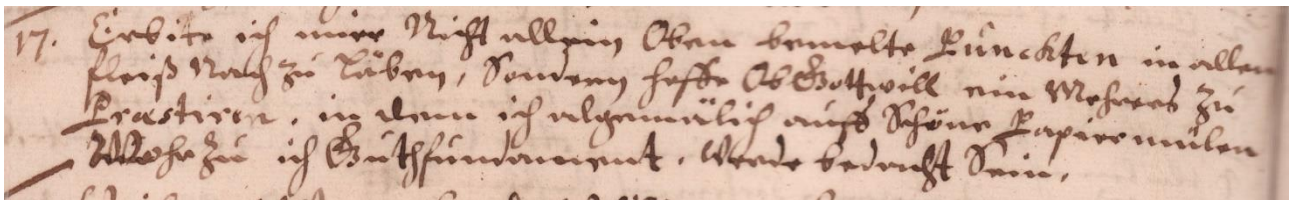 17. Erbite ich mier Nicht allein Oben bemelte Punckten in allen
fleiß Nach zu läben, Sondern hoffe Ob Gott will ein Mehrers zu
Præstiren. in dem ich algemälich auff Schöne Papiermülen
zu ich Guth fundament. Werde bedacht Sein.